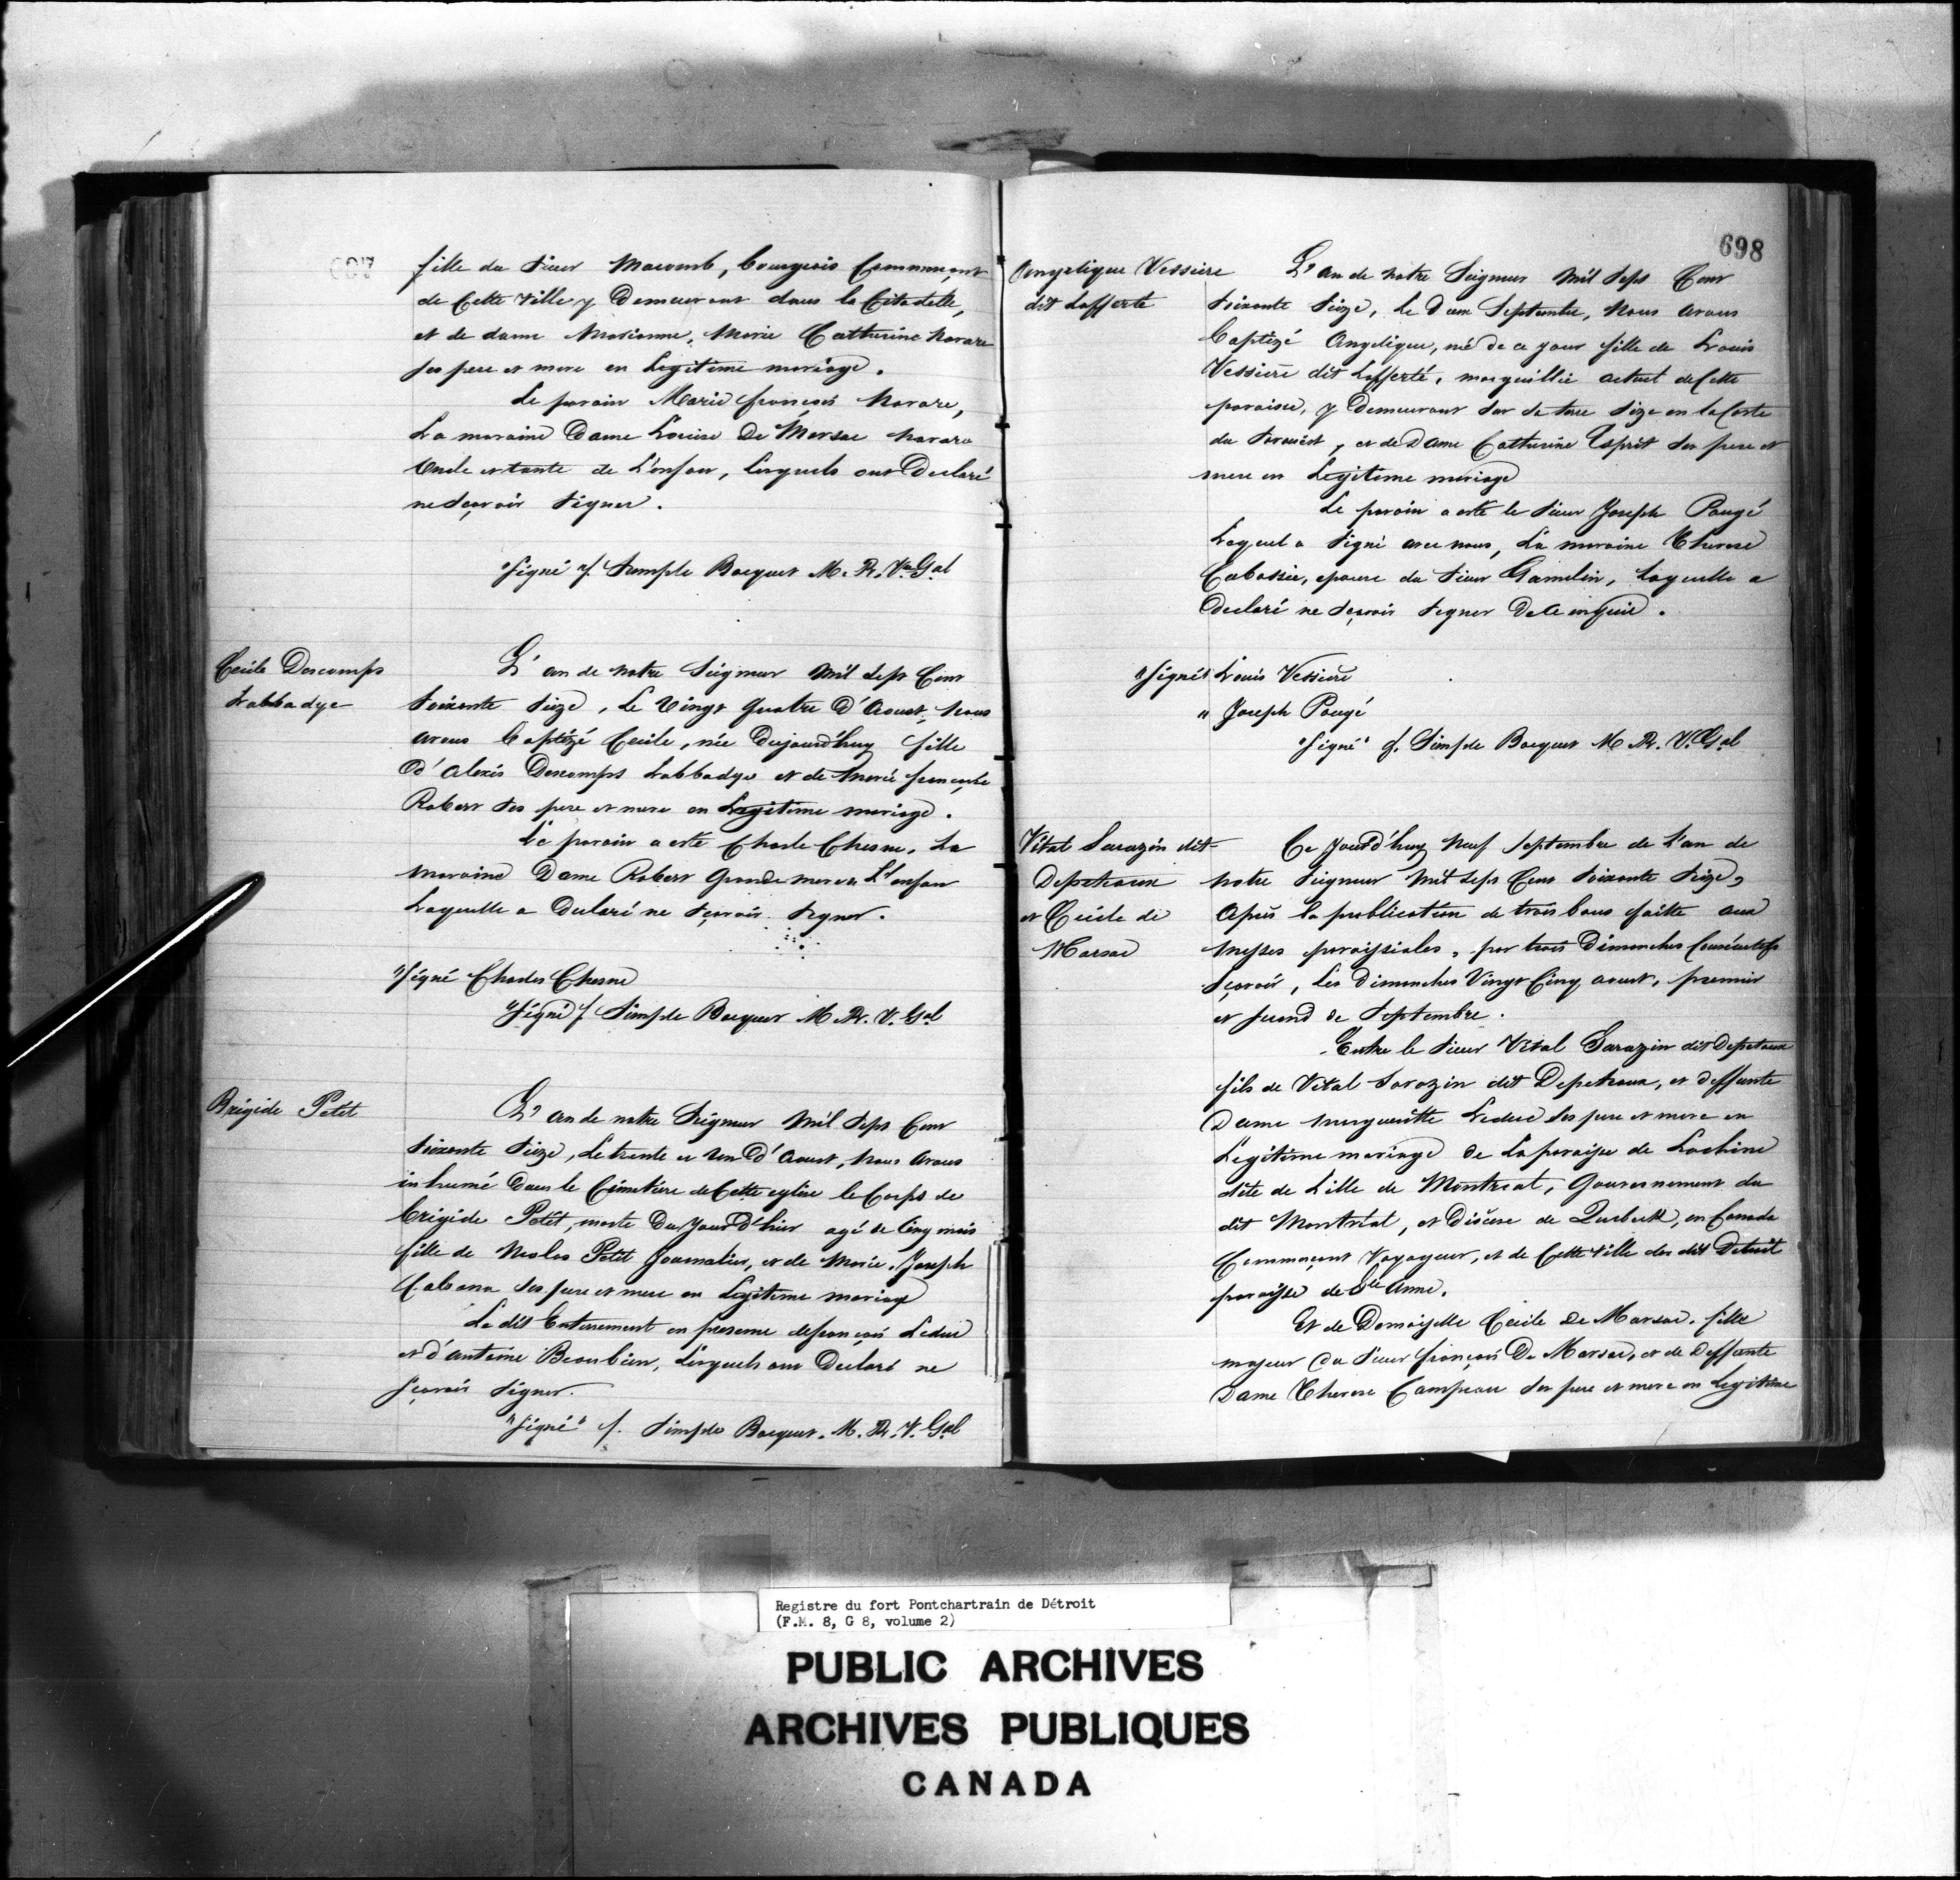 fille du Sieur Macomb, bourgeois Commerçant
de Cette ville y Demeurant dans la Citadelle,
et de dame Marianne, Marie Catherine Navare
ses pere et mere en Legitime mariage.
Le parain Marie françois Navare,
La maraine Dame Louise De Marsac Navare
Oncle et tante de L'enfant, lesquels ont Declaré
ne Sçavoir Signer.
"Signé" f. Simple Bocquet M. Pr. V. Gal
Cecile Descomps
Labbadye
L'an de notre Seigneur Mil Sept Cent
Soixante Seize, Le Vingt Quatre D'Aoust, Nous
avons baptizé Cecile, née Dujourd'huy fille
D'Alexis Descomps Labbadye et de Marie françoise
Robert ses pere et mere en Legitime mariage.
Le parain a esté Charle Chesne, La
Maraine Dame Robert Grande mere de L'enfant
Laquelle a Declaré ne Sçavoir Signer.
"Signé Charles Chesne
"Signé" f. Simple Bocquet M. Pr. V. Gal
Brigide Petit
L'an de notre Seigneur Mil Sept Cent
Soixante Seize, Le trente et un D'Aoust, Nous avons
inhumé Dans le Cimetiere de Cette eglise le Corps de
Brigide Petit, morte Du Jour D'hier agé de Cinq mois
fille de Nicolas Petit Journalier, et de Marie Joseph
Cabana ses pere et mere en Legitime mariage
Le dit Enterrement en presence de françois Leduc
et d'antoine Beaubien, Lesquels ont Declaré ne
sçavoir Signer.
"Signé" f. Simple Bocquet. M. Pr. V. Gal
698
Angelique Vessiere
dit Lafferté
L'an de Notre Seigneur Mil Sept Cent
Soixante Seize, Le Septembre, Nous avons
baptizé Angelique, né de ce jour fille de Louis
Vessiere dit Lafferté, marguillie actuel de Cette
paroisse, y Demeurant Sur Sa terre Size en la Coste
du , et de Dame Catherine Esprit ses pere et
mere en Legitime mariage
Le parain a esté le Sieur Joseph Pougé
Lequel a Signé avec nous, La maraine Therese
Cabassie, epouse du Sieur Gamelin, Laquelle a
Declaré ne Sçavoir Signer De Ce enquis.
"Signé" Louis Vessiere
" Joseph Pougé
"Signé" f. Simple Bocquet M Pr. V. Gal
Vital Sarazin dit
Depelteaux
et Cecile de
Marsac
Ce jourd'huy Neuf Septembre de L'an de
Notre Seigneur Mil Sept Cent Soixante Seize,
Après la publication de trois bans faitte aux
Messes paroissiales, par trois Dimanches Consécutifs
Sçavoir, Les Dimanches Vingt Cinq aoust, premier
et second de Septembre.
Entre le Sieur Vital Sarazin dit Depelteaux
fils de Vital Sarazin dit Depelteaux, et deffunte
Dame Marguerite Leduc ses pere et mere en
Legitime mariage de La paroisse de Lachine
dite de L'ille de Montreal, Gouvernement du
dit Montréal, et Diocese de Quebeck, en Canada
Commerçant Voyageur, et de Cette ville du dit Detroit
paroisse de Ste Anne.
Et de Demoiselle Cecile De Marsac. fille
majeur Du Sieur françois De Marsac, et de Deffunte
Dame Therese Campeau ses pere et mere en Legitime
Registre du fort Pontchartrain de Détroit
(F.M. 8, G 8, volume 2)
PUBLIC ARCHIVES
ARCHIVES PUBLIQUES
CANADA